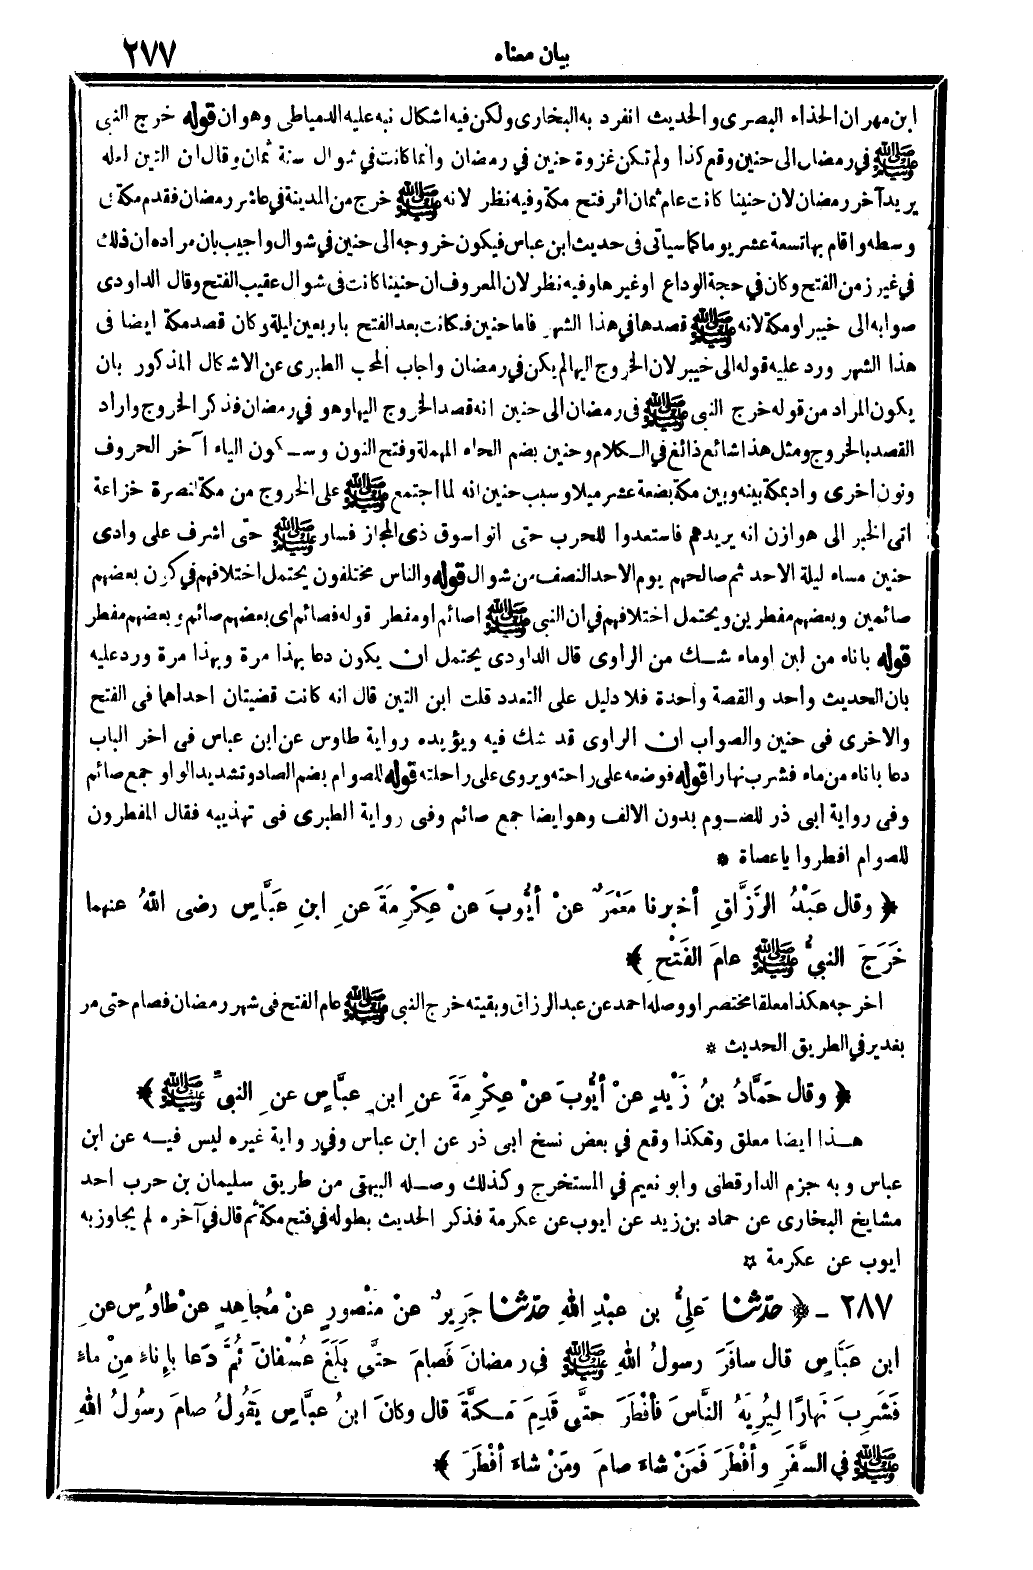 بيان معناه ٢٧٧
ابن مهران الحذاء البصرى والحديث انفرد به البخارى ولكن فيه اشكال نبه عليه الدمياطى وهو ان قوله خرج النبى
ﷺ فى رمضان الى حنين وقع كذا ولم تكن غزوة حنين في رمضان وانما كانت في شوال سنة ثمان وقال ابن التين لعله
يريد آخر رمضان لان حنينا كانت عام ثمان اثر فتح مكة وفيه نظر لانه ﷺ خرج من المدينة في عاشر رمضان فقدم مكة في
وسطه واقام بها تسعة عشر يوما كما سياتى فى حديث ابن عباس فيكون خروجه الى حنين في شوال واجيب بان مراده ان ذلك
في غير زمن الفتح وكان في حجة الوداع او غيرها وفيه نظر لان المعروف ان حنينا كانت فى شوال عقيب الفتح وقال الداودى
صوابه الى خيبر او مكة لانه ﷺ قصدها في هذا الشهر فاما حنين فكانت بعد الفتح باربعين ليلة وكان قصد مكة ايضا فى
هذا الشهر ورد عليه قوله الى خيبر لان الخروج اليها لم يكن في رمضان واجاب المحب الطبرى عن الاشكال المذكور بان
يكون المراد من قوله خرج النبى ﷺ فى رمضان الى حنين انه قصد الخروج اليها وهو في رمضان فذكر الخروج واراد
القصد بالخروج ومثل هذا شائع ذائع في الكلام وحنين بضم الحاء المهملة وفتح النون وسكون الياء آخر الحروف
ونون اخرى واد بمكة بينه وبين مكة بضعة عشر ميلا وسبب حنين انه لما اجتمع ﷺ على الخروج من مكة لنصرة خزاعة
اتى الخبر الى هوازن انه يريدهم فاستعدوا للحرب حتى اتوا سوق ذى المجاز فسار ﷺ حتى اشرف على وادى
حنين مساء ليلة الاحد ثم صالحهم يوم الاحد النصف من شوال قوله والناس مختلفون يحتمل اختلافهم في كون بعضهم
صائمين وبعضهم مفطرين ويحتمل اختلافهم في ان النبى ﷺ اصائم او مفطر قوله فصائم اى بعضهم صائم وبعضهم مفطر
قوله باناء من لبن اوماء شك من الراوى قال الداودى يحتمل ان يكون دعا بهذا مرة وبهذا مرة ورد عليه
بان الحديث واحد والقصة واحدة فلا دليل على التعدد قلت ابن التين قال انه كانت قضيتان احداهما فى الفتح
والاخرى فى حنين والصواب ان الراوى قد شك فيه ويؤيده رواية طاوس عن ابن عباس فى اخر الباب
دعا باناء من ماء فشرب نهارا قوله فوضعه على راحته ويروى على راحلته قوله للصوام بضم الصاد وتشديد الواو جمع صائم
وفى رواية ابى ذر للصوم بدون الالف وهو ايضا جمع صائم وفى رواية الطبرى فى تهذيبه فقال المفطرون
للصوام افطروا يا عصاة *
﴿ وقال عَبْدُ الرَّزَّاقِ أخبرنا مَعْمَرٌ عنْ أيُّوبَ عنْ عِكْرِمَةَ عنِ ابنِ عَبَّاسٍ رضى اللهُ عنهما
خَرَجَ النبىُّ ﷺ عامَ الفَتْحِ ﴾
اخرجه هكذا معلقا مختصرا ووصله احمد عن عبد الرزاق وبقيته خرج النبى ﷺ عام الفتح فى شهر رمضان فصام حتى مر
بغدير في الطريق الحديث *
﴿ وقال حَمَّادُ بنُ زَيْدٍ عنْ أيُّوبَ عنْ عِكْرِمَةَ عنِ ابنِ عبَّاسٍ عنِ النبىِّ ﷺ ﴾
هذا ايضا معلق وهكذا وقع في بعض نسخ ابى ذر عن ابن عباس وفي رواية غيره ليس فيه عن ابن
عباس وبه جزم الدارقطنى وابو نعيم في المستخرج وكذلك وصله البيهقى من طريق سليمان بن حرب احد
مشايخ البخارى عن حماد بن زيد عن ايوب عن عكرمة فذكر الحديث بطوله في فتح مكة ثم قال في آخره لم يجاوز به
ايوب عن عكرمة *
٢٨٧ - ﴿ حدّثنا عَلِىُّ بن عبْدِ اللهِ حدّثنا جَرِيرٌ عنْ مَنْصورٍ عنْ مُجاهِدٍ عنْ طاوُسٍ عنِ
ابن عَبَّاسٍ قال سافَرَ رسولُ اللهِ ﷺ فى رمضانَ فَصامَ حتَّى بَلَغَ عُسْفانَ ثُمَّ دَعا بإناءٍ مِنْ ماءٍ
فَشَرِبَ نَهارًا لِيُرِيَهُ النَّاسَ فأفْطَرَ حتَّى قَدِمَ مَكَّةَ قال وكانَ ابنُ عبَّاسٍ يَقُولُ صامَ رسُولُ اللهِ
ﷺ في السَّفَرِ وأفْطَرَ فَمَنْ شاءَ صامَ ومَنْ شاءَ أفْطَرَ ﴾